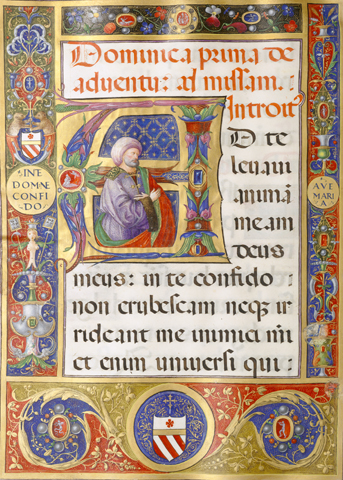 Dominica prima de
aduentu: ad missam.
Introit9
AD te
leuaui
animā
meam
deus
meus: in te confido
non erubescam neqz ir
rideant me inimici mi
et enim uniuersi qui
·INE
DOMNE
CONFI
DO·
AVE
MARI
A